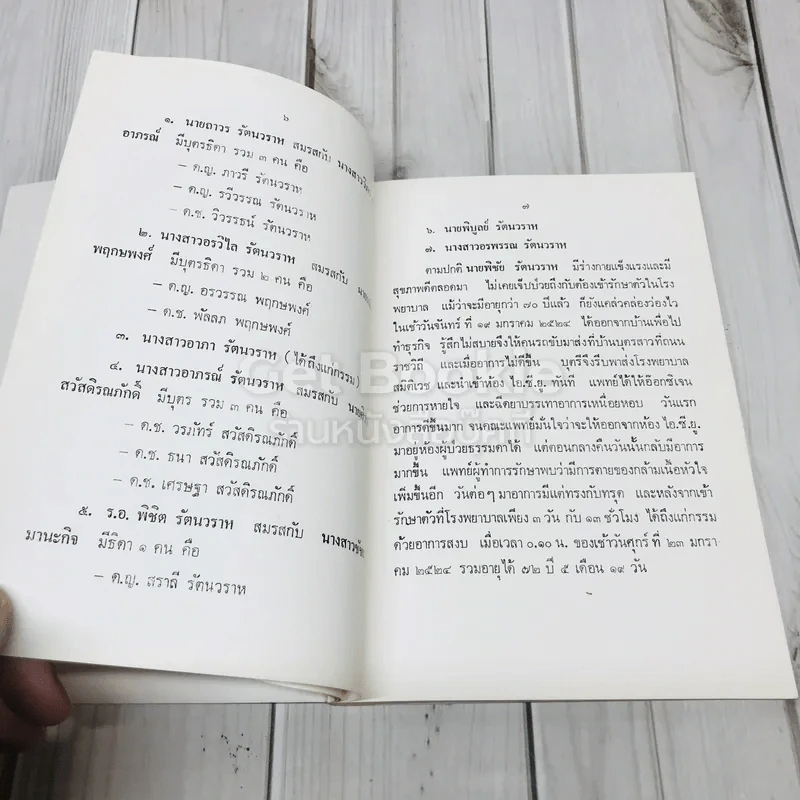 ๖
๑. นายถาวร รัตนวราห สมรสกับ นางสาววิภา
อาภรณ์ มีบุตรธิดา รวม ๓ คน คือ
– ด.ญ. ภาวรี รัตนวราห
– ด.ญ. รวีวรรณ รัตนวราห
– ด.ช. วิวรรธน์ รัตนวราห
๒. นางสาวอรวิไล รัตนวราห สมรสกับ
พฤกษพงศ์ มีบุตรธิดา รวม ๒ คน คือ
– ด.ญ. อรวรรณ พฤกษพงศ์
– ด.ช. พัลลภ พฤกษพงศ์
๓. นางสาวอาภา รัตนวราห (ได้ถึงแก่กรรม)
๔. นางสาวอาภรณ์ รัตนวราห สมรสกับ
สวัสดิรณภักดิ์ มีบุตร รวม ๓ คน คือ
– ด.ช. วรภัทร์ สวัสดิรณภักดิ์
– ด.ช. ธนา สวัสดิรณภักดิ์
– ด.ช. เศรษฐา สวัสดิรณภักดิ์
๕. ร.อ. พิชิต รัตนวราห สมรสกับ
มานะกิจ มีธิดา ๑ คน คือ
– ด.ญ. สราลี รัตนวราห
๗
๖. นายพิบูลย์ รัตนวราห
๗. นางสาวอรพรรณ รัตนวราห
ตามปกติ นายพิชัย รัตนวราห มีร่างกายแข็งแรงและมี
สุขภาพดีตลอดมา ไม่เคยเจ็บป่วยถึงกับต้องเข้ารักษาตัวในโรง
พยาบาล แม้ว่าจะมีอายุกว่า ๗๐ ปีแล้ว ก็ยังแคล่วคล่องว่องไว
ในเช้าวันจันทร์ ที่ ๑๙ มกราคม ๒๕๒๔ ได้ออกจากบ้านเพื่อไป
ทำธุรกิจ รู้สึกไม่สบายจึงให้คนรถขับมาส่งที่บ้านบุตรสาวที่ถนน
ราชวิถี และเมื่ออาการไม่ดีขึ้น บุตรีจึงรีบพาส่งโรงพยาบาล
สมิติเวช และนำเข้าห้อง ไอ.ซี.ยู. ทันที แพทย์ได้ให้อ๊อกซิเจน
ช่วยการหายใจ และฉีดยาบรรเทาอาการเหนื่อยหอบ วันแรก
อาการดีขึ้นมาก จนคณะแพทย์มั่นใจว่าจะให้ออกจากห้อง ไอ.ซี.ยู.
มาอยู่ห้องผู้ป่วยธรรมดาได้ แต่ตอนกลางคืนวันนั้นกลับมีอาการ
มากขึ้น แพทย์ผู้ทำการรักษาพบว่ามีการตายของกล้ามเนื้อหัวใจ
เพิ่มขึ้นอีก วันต่อๆ มาอาการมีแต่ทรงกับทรุด และหลังจากเข้า
รักษาตัวที่โรงพยาบาลเพียง ๓ วัน กับ ๑๓ ชั่วโมง ได้ถึงแก่กรรม
ด้วยอาการสงบ เมื่อเวลา ๐.๑๐ น. ของเช้าวันศุกร์ ที่ ๒๓ มกรา
คม ๒๕๒๔ รวมอายุได้ ๗๒ ปี ๕ เดือน ๑๙ วัน
Get Bookie